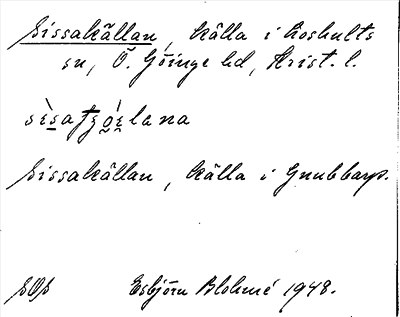 Sissakällan, källa i Loshults
sn, Ö. Göinge hd, Krist. l.
Sissakällan, källa i Gnubbarp.
Esbjörn Blohmé 1948.